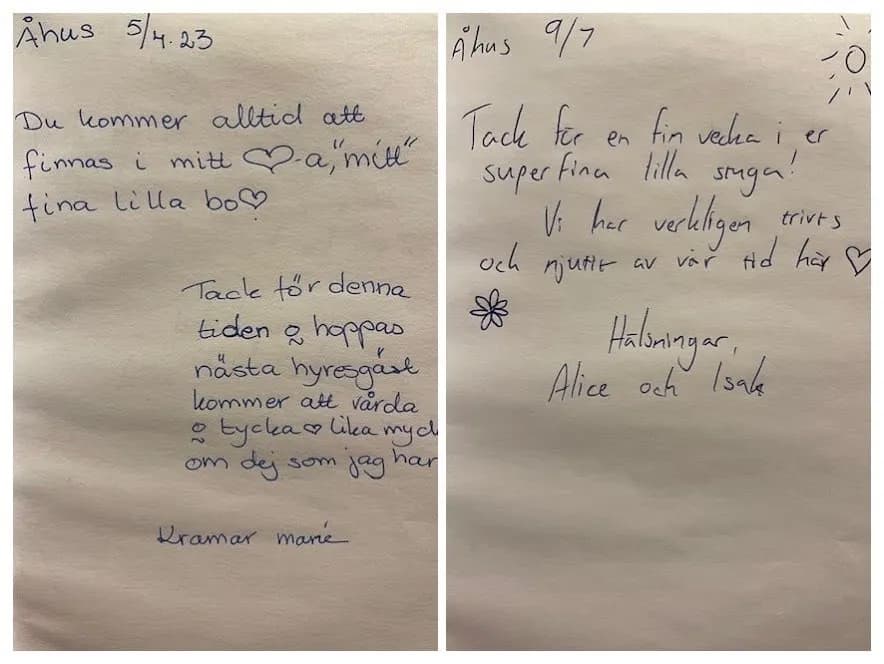 Åhus 5/4.23
Du kommer alltid att
finnas i mitt ♡-a, "mitt"
fina lilla bo♡
Tack för denna
tiden o hoppas
nästa hyresgäst
kommer att vårda
o tycka ♡ lika myc
om dej som jag har
Kramar marie
Åhus 9/7
Tack för en fin vecka i er
superfina lilla stuga!
Vi har verkligen trivts
och njutit av vår tid här ♡
Hälsningar,
Alice och Isak